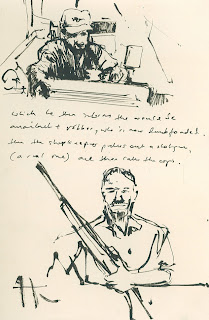 which he then informs the would be
armed robber, who is now dumbfounded.
then the shopkeeper pulls out a shotgun,
(a real one) and then calls the cops.